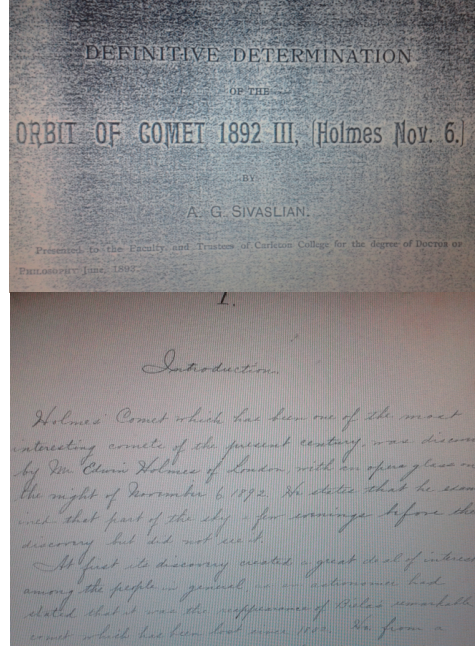 DEFINITIVE DETERMINATION
OF THE
ORBIT OF COMET 1892 III, (Holmes Nov. 6.)
BY
A. G. SIVASLIAN.
Presented to the Faculty and Trustees of Carleton College for the degree of DOCTOR OF
PHILOSOPHY June, 1893.
1.
Introduction.
Holmes' Comet which has been one of the most
interesting comets of the present century, was discov
by Mr. Edwin Holmes of London, with an opera glass on
the night of November 6, 1892. He states that he exam
ined that part of the sky a few evenings before the
discovery but did not see it.
At first its discovery created a great deal of interest
among the people in general, as an astronomer had
stated that it was the reappearance of Biela's remarkable
comet which has been lost since 1852. He from a